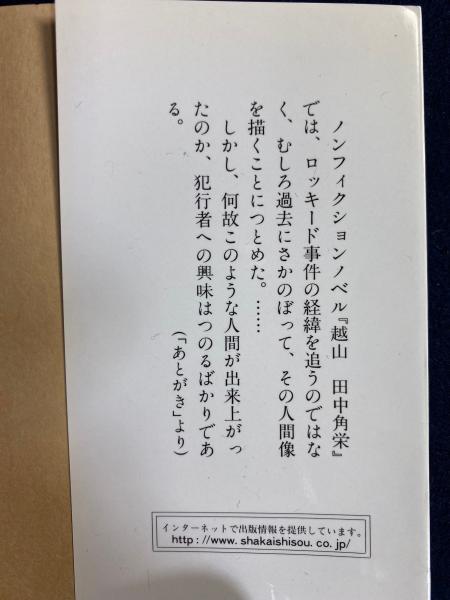 ノンフィクションノベル『越山　田中角栄』
では、ロッキード事件の経緯を追うのではな
く、むしろ過去にさかのぼって、その人間像
を描くことにつとめた。……
しかし、何故このような人間が出来上がっ
たのか、犯行者への興味はつのるばかりであ
る。
（「あとがき」より）
インターネットで出版情報を提供しています。
http://www.shakaishisou.co.jp/